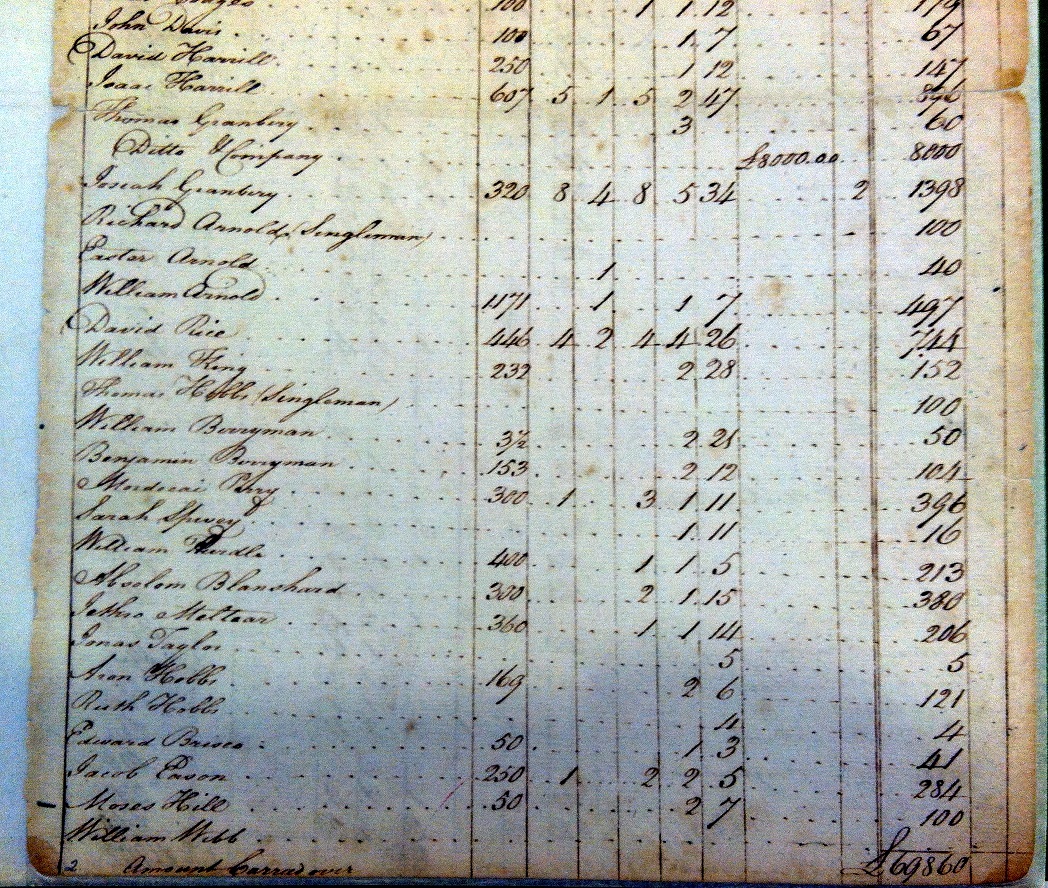 100 1 1 12 179
John Davis 100 1 7 67
David Harrill 250 1 12 147
Isaac Harrill 607 5 1 5 2 47 896
Thomas Granbery 3 60
Ditto & Company £8000.00 8000
Josiah Granbery 320 8 4 8 5 34 2 1398
Richard Arnold (Singleman) 100
Easter Arnold 1 40
William Arnold 1171 1 1 7 497
David Rice 446 4 2 4 4 26 744
William King 232 2 28 152
Thomas Hobbs (Singleman) 100
William Berryman 37½ 2 21 50
Benjamin Berryman 153 2 12 104
Mordecai Perry 300 1 3 1 11 396
Sarah Spivey 1 11 16
William 400 1 1 5 213
Absolom Blanshard 300 2 1 15 380
Jethro Meltear 360 1 1 14 206
Jonas Taylor 5 5
Aron Hobbs 169 2 6 121
Ruth Hobbs 4 4
Edward Brisco 50 1 3 41
Jacob Eason 250 1 2 2 5 284
Moses Hill 50 2 7 100
William Webb
2 Amount Carrad over £69860